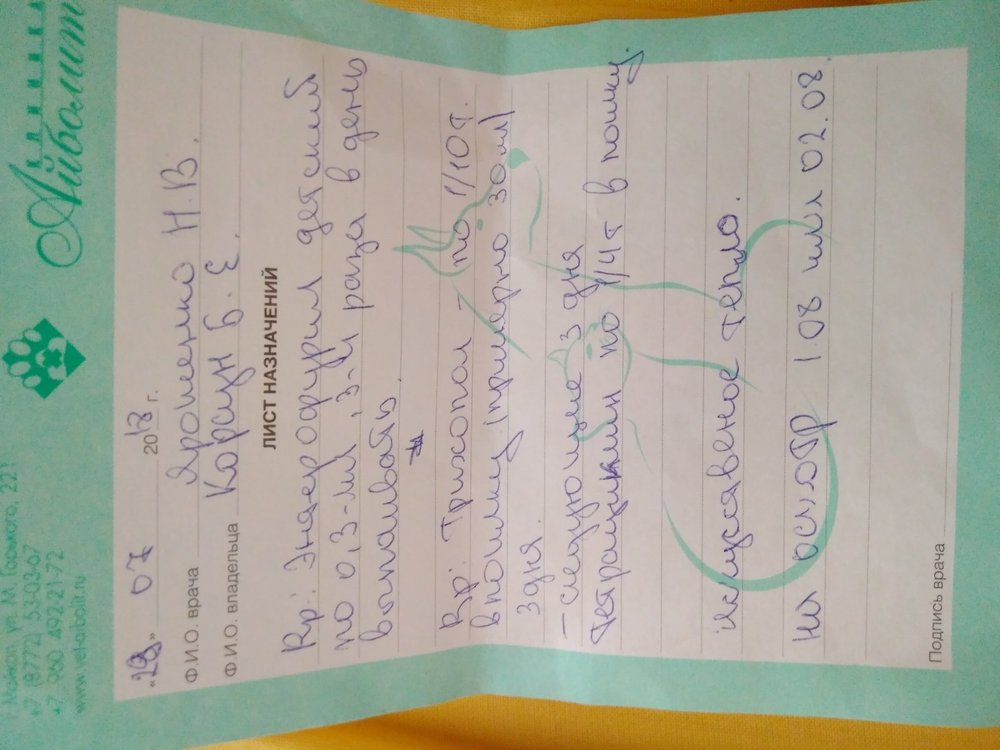 Айболит
г. Майкоп ул. М. Горького, 221
+7 (8772) 53-03-67
+7 960 492-21-72
www.vetaibolit.ru
07 2018 г.
Ф.И.О. врача Ярошенко Н.В.
Ф.И.О. владельца Корсун Б.Е
ЛИСТ НАЗНАЧЕНИЙ
Rp: Энтерофурил детский
по 0,3-мл, 3-4 раза в день
выпаивать.
Rp: Трихопол - по 1/10т.
в поилку (примерно 30 мл)
3 дня.
- следующие 3 дня
Тетрациклин по 1/4т в поилку.
Искуссавеное тепло.
На осмотр 1.08 или 02.08
Подпись врача